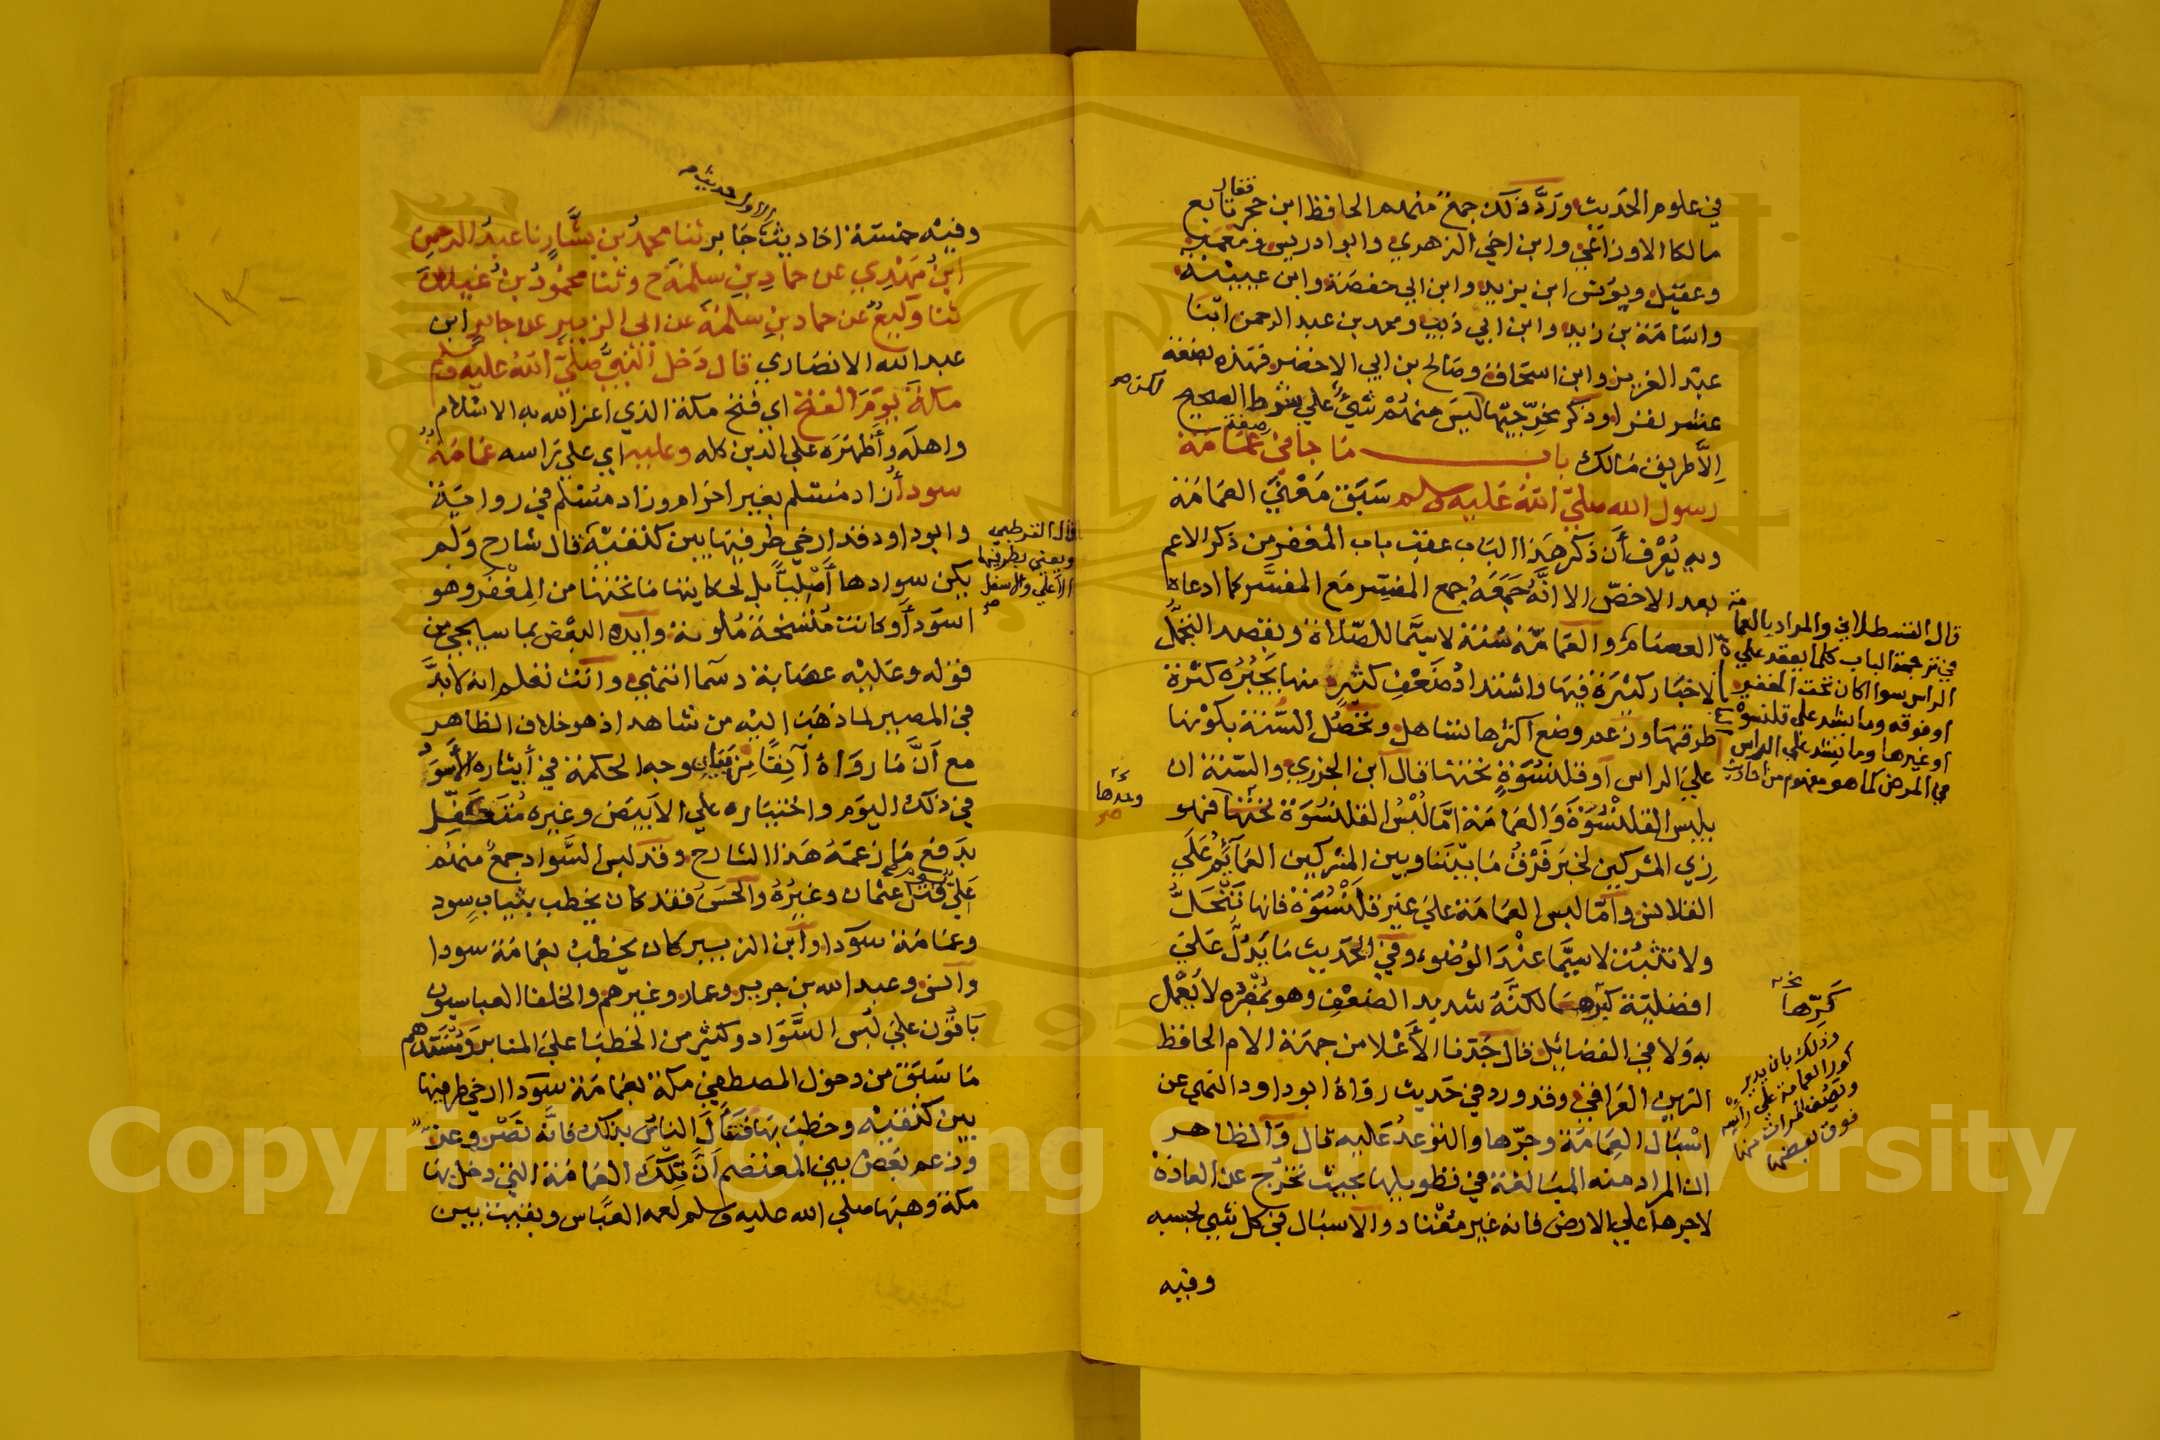 في علوم الحديث ورد ذلك جمع منهم الحافظ ابن حجر فقال تابع
مالكا الاوزاعي وابن اخي الزهري وابو ادريس ومعمر
وعقيل ويونس ابن يزيد وابن ابي حفصة وابن عيينة
واسامة بن زيد وابن ابي ذيب ومحمد بن عبد الرحمن ابنا
عبد العزيز وابن اسحاق وصالح بن ابي الاخضر فهذه بضعة
عشر نفرا وذكر مخرجيها ليس منهم شيء علي شرط الصحيح
لكن صح
الا طريق مالك باب ما جا في صفة عمامة
رسول الله صلي الله عليه وسلم سبق معني العمامة
وبه يعرف أن ذكر هذا الباب عقب باب المغفر من ذكر الاعم
بعد الاخص الا انه جمعه جمع المفسر مع المفسر كما ادعاه
العصام والعمامة سنة لا سيما للصلاة وبقصد التجمل
لاخبار كثيرة فيها واشتداد ضعف كثير منها يجبره كثرة
طرقها وزعم وضع اكثرها تساهل وتحصل السنة بكونها
علي الراس او قلنسوة تحتها قال ابن الجزري والسنة ان
يلبس القلنسوة والعمامة اما لبس القلنسوة تحتها فهو
زي المشركين لخبر فرق ما بيننا وبين المشركين العمائم علي
القلانس واما لبس العمامة علي غير قلنسوة فانها تنحل
ولا تثبت لا سيما عند الوضوء وفي الحديث ما يدل علي
افضلية كبرها لكنه شديد الضعف وهو بمفرده لا يعمل
به ولا في الفضائل قال جدنا الأعلا من جهة الام الحافظ
الزين العراقي وقد ورد في حديث رواة ابو داود النهي عن
اسبال العمامة وجرها والتوعد عليه قال والظاهر
ان المراد منه المبالغة في تطويلها بحيث تخرج عن العادة
لا جرها علي الارض فانه غير معتاد والاسبال في كل شي بحسبه
وفيه
قال القسطلاني والمراد بالعمامة
في ترجمة الباب كلما يعقد علي
الراس سوا اكان تحت المغفر
او فوقه وما يشد علي قلنسوة
او غيرها وما يشد علي الراس
في المرض كما هو مفهوم من احاديث
كبرها
وذلك بان يدير
كور العمامة علي رأسه
فوق بعضها
وفيه خمسة احاديث الاول حديث جابر ثنا محمد بن بشار نا عبد الرحمن
ابن مهدي عن حماد بن سلمة ح وثنا محمود بن غيلان
ثنا وكيع عن حماد بن سلمة عن ابي الزبير عن جابر ابن
عبد الله الانصاري قال دخل النبي صلي الله عليه وسلم
مكة يوم الفتح اي فتح مكة الذي اعز الله به الاسلام
واهله وأظهره علي الدين كله وعليه اي علي راسه عمامة
سودا زاد مسلم بغير احرام وزاد مسلم في رواية
وابو داود قد ارخي طرفيها بين كتفيه قال شارح ولم
يكن سوادها أصليا بل لحكايتها ما تحتها من المغفر وهو
اسود أو كانت متسخة ملونة وأيده البعض بما سيجي من
قوله وعليه عصابة دسما انتهي وانت تعلم انه لا بد
في المصير لما ذهب اليه من شاهد اذ هو خلاف الظاهر
مع أن ما رواه آنفا من بيان وجه الحكمة في أيثاره الأسود
في ذلك اليوم واختياره علي الابيض وغيره متكفل
بدفع ما زعمه هذا الشارح وقد لبس السواد جمع منهم
علي يوم قتل عثمان وغيره والحسن فقد كان يخطب بثياب سود
وعمامة سودا وابن الزبير كان يخطب بعمامة سودا
وانس وعبد الله بن جرير وعمار وغيرهم والخلفا العباسيون
باقون علي لبس السواد وكثير من الخطبا علي المنابر ومستندهم
ما سبق من دخول المصطفي مكة بعمامة سودا ارخي طرفيها
بين كتفيه وخطب بها فتفآل الناس بذلك فانه نصر وعز
وزعم بعض بني المعتصم أن تلك العمامة التي دخل بها
مكة وهبها صلي الله عليه وسلم لعمه العباس وبقيت بين
قال القرطبي
ويعني بطرفيها
الأعلي والاسفل
صح
Copyright © King Saud University
1957